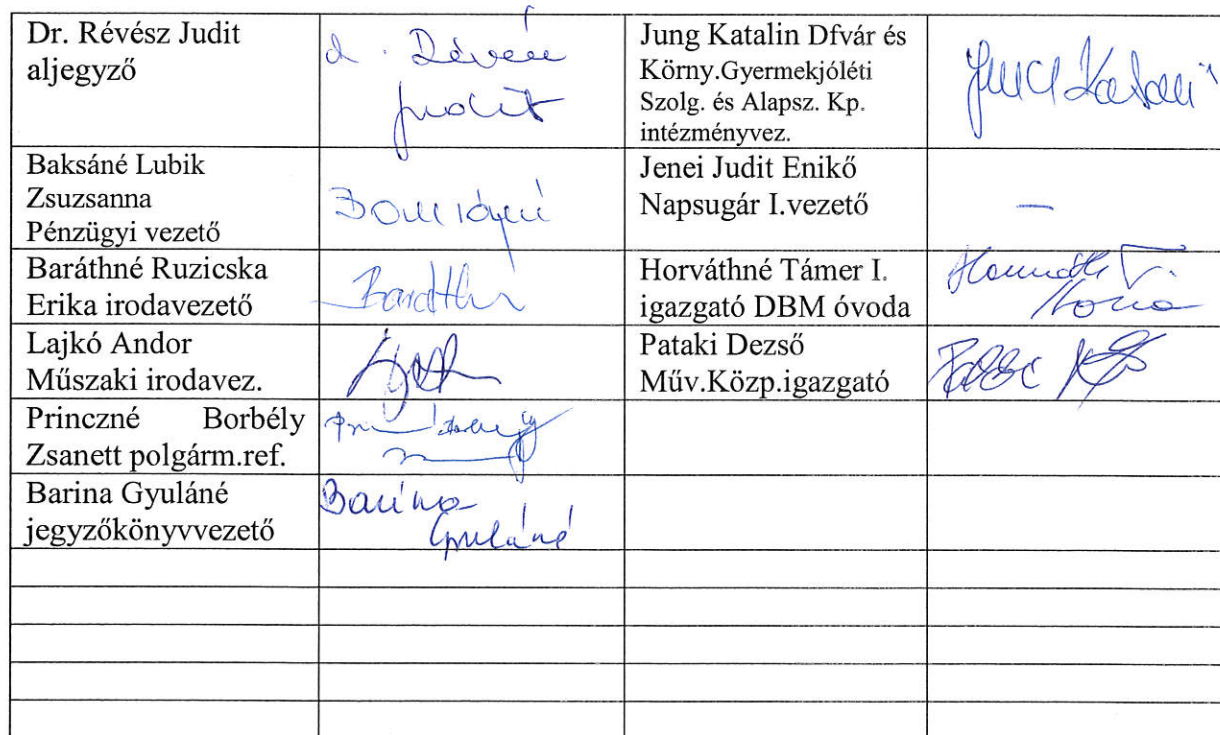 Dr. Révész Judit
aljegyző
d. Révész
Judit
Jung Katalin Dfvár és
Körny.Gyermekjóléti
Szolg. és Alapsz. Kp.
intézményvez.
Jung Katalin
Baksáné Lubik
Zsuzsanna
Pénzügyi vezető
Jenei Judit Enikő
Napsugár I.vezető
—
Baráthné Ruzicska
Erika irodavezető
Baráthné
Horváthné Támer I.
igazgató DBM óvoda
Horváthné T.
Ilona
Lajkó Andor
Műszaki irodavez.
Pataki Dezső
Műv.Közp.igazgató
Princzné Borbély
Zsanett polgárm.ref.
Barina Gyuláné
jegyzőkönyvvezető
Barina
Gyuláné